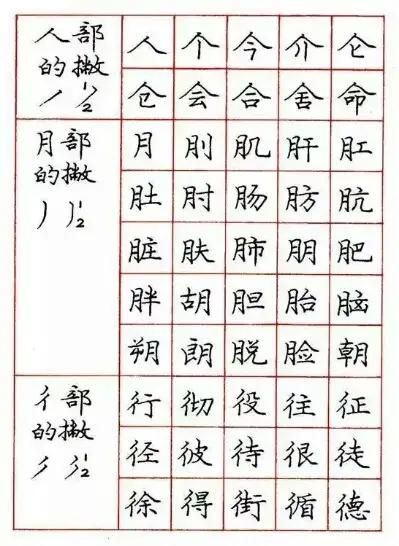 人部
的撇
丿 1/2
人 个 今 介 仑
仓 会 合 舍 命
月部
的撇
丿 1/2
月 刖 肌 肝 肛
肚 肘 肠 肪 肮
脏 肤 肺 朋 肥
胖 胡 胆 胎 脑
朔 朗 脱 脸 朝
彳部
的撇
1/2
行 彻 役 往 征
径 彼 待 很 徒
徐 得 街 循 德